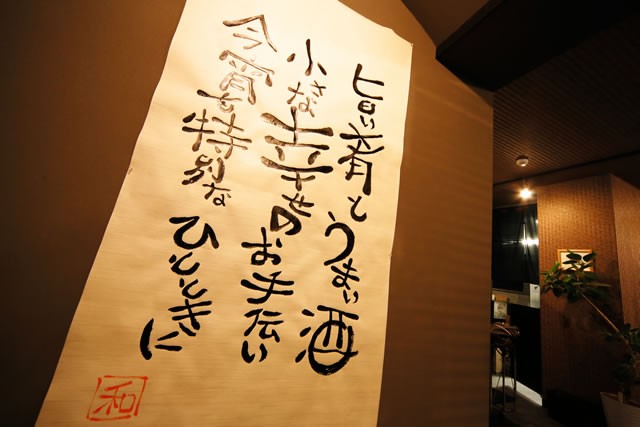 旨い肴とうまい酒
小さな幸せのお手伝い
今宵を特別なひとときに
和